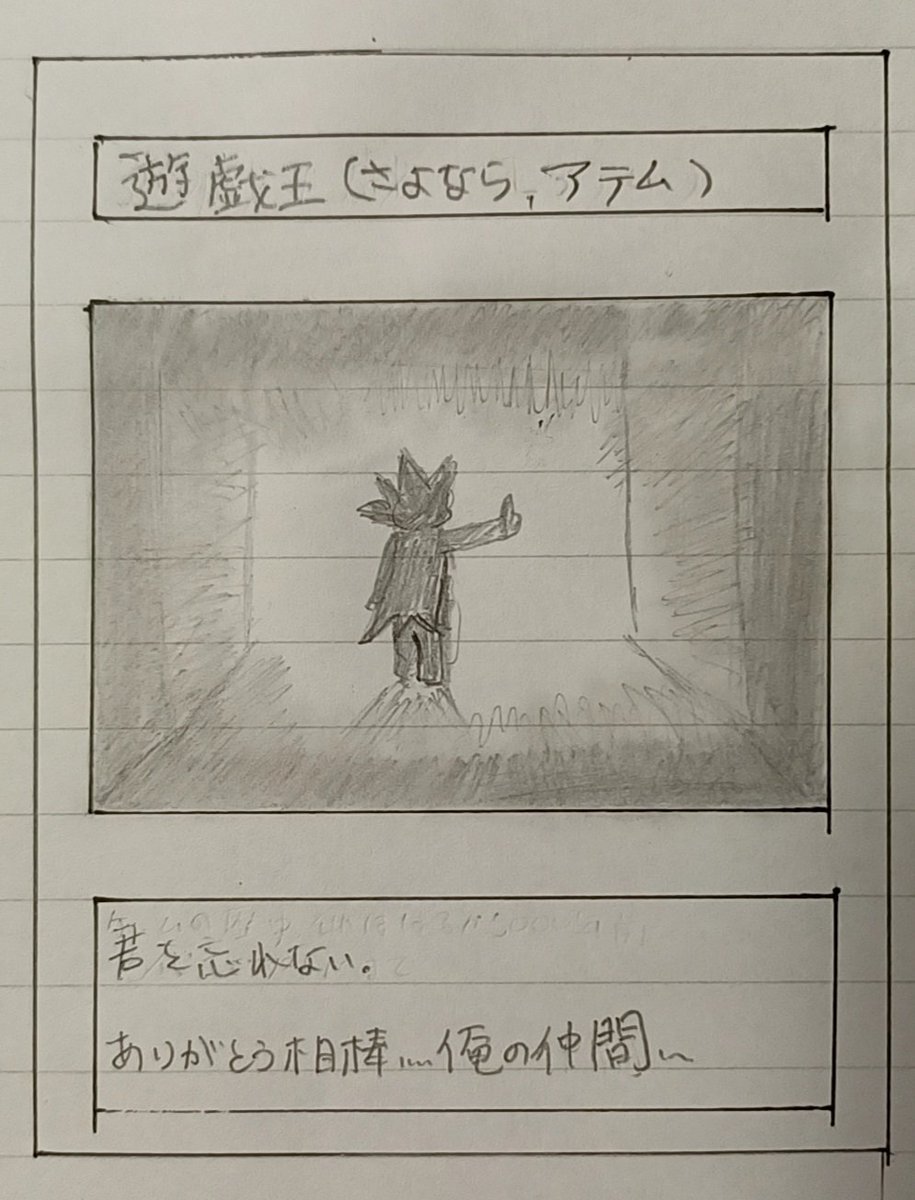 遊戯王(さよなら,アテム)
君を忘れない。
ありがとう相棒……俺の仲間…